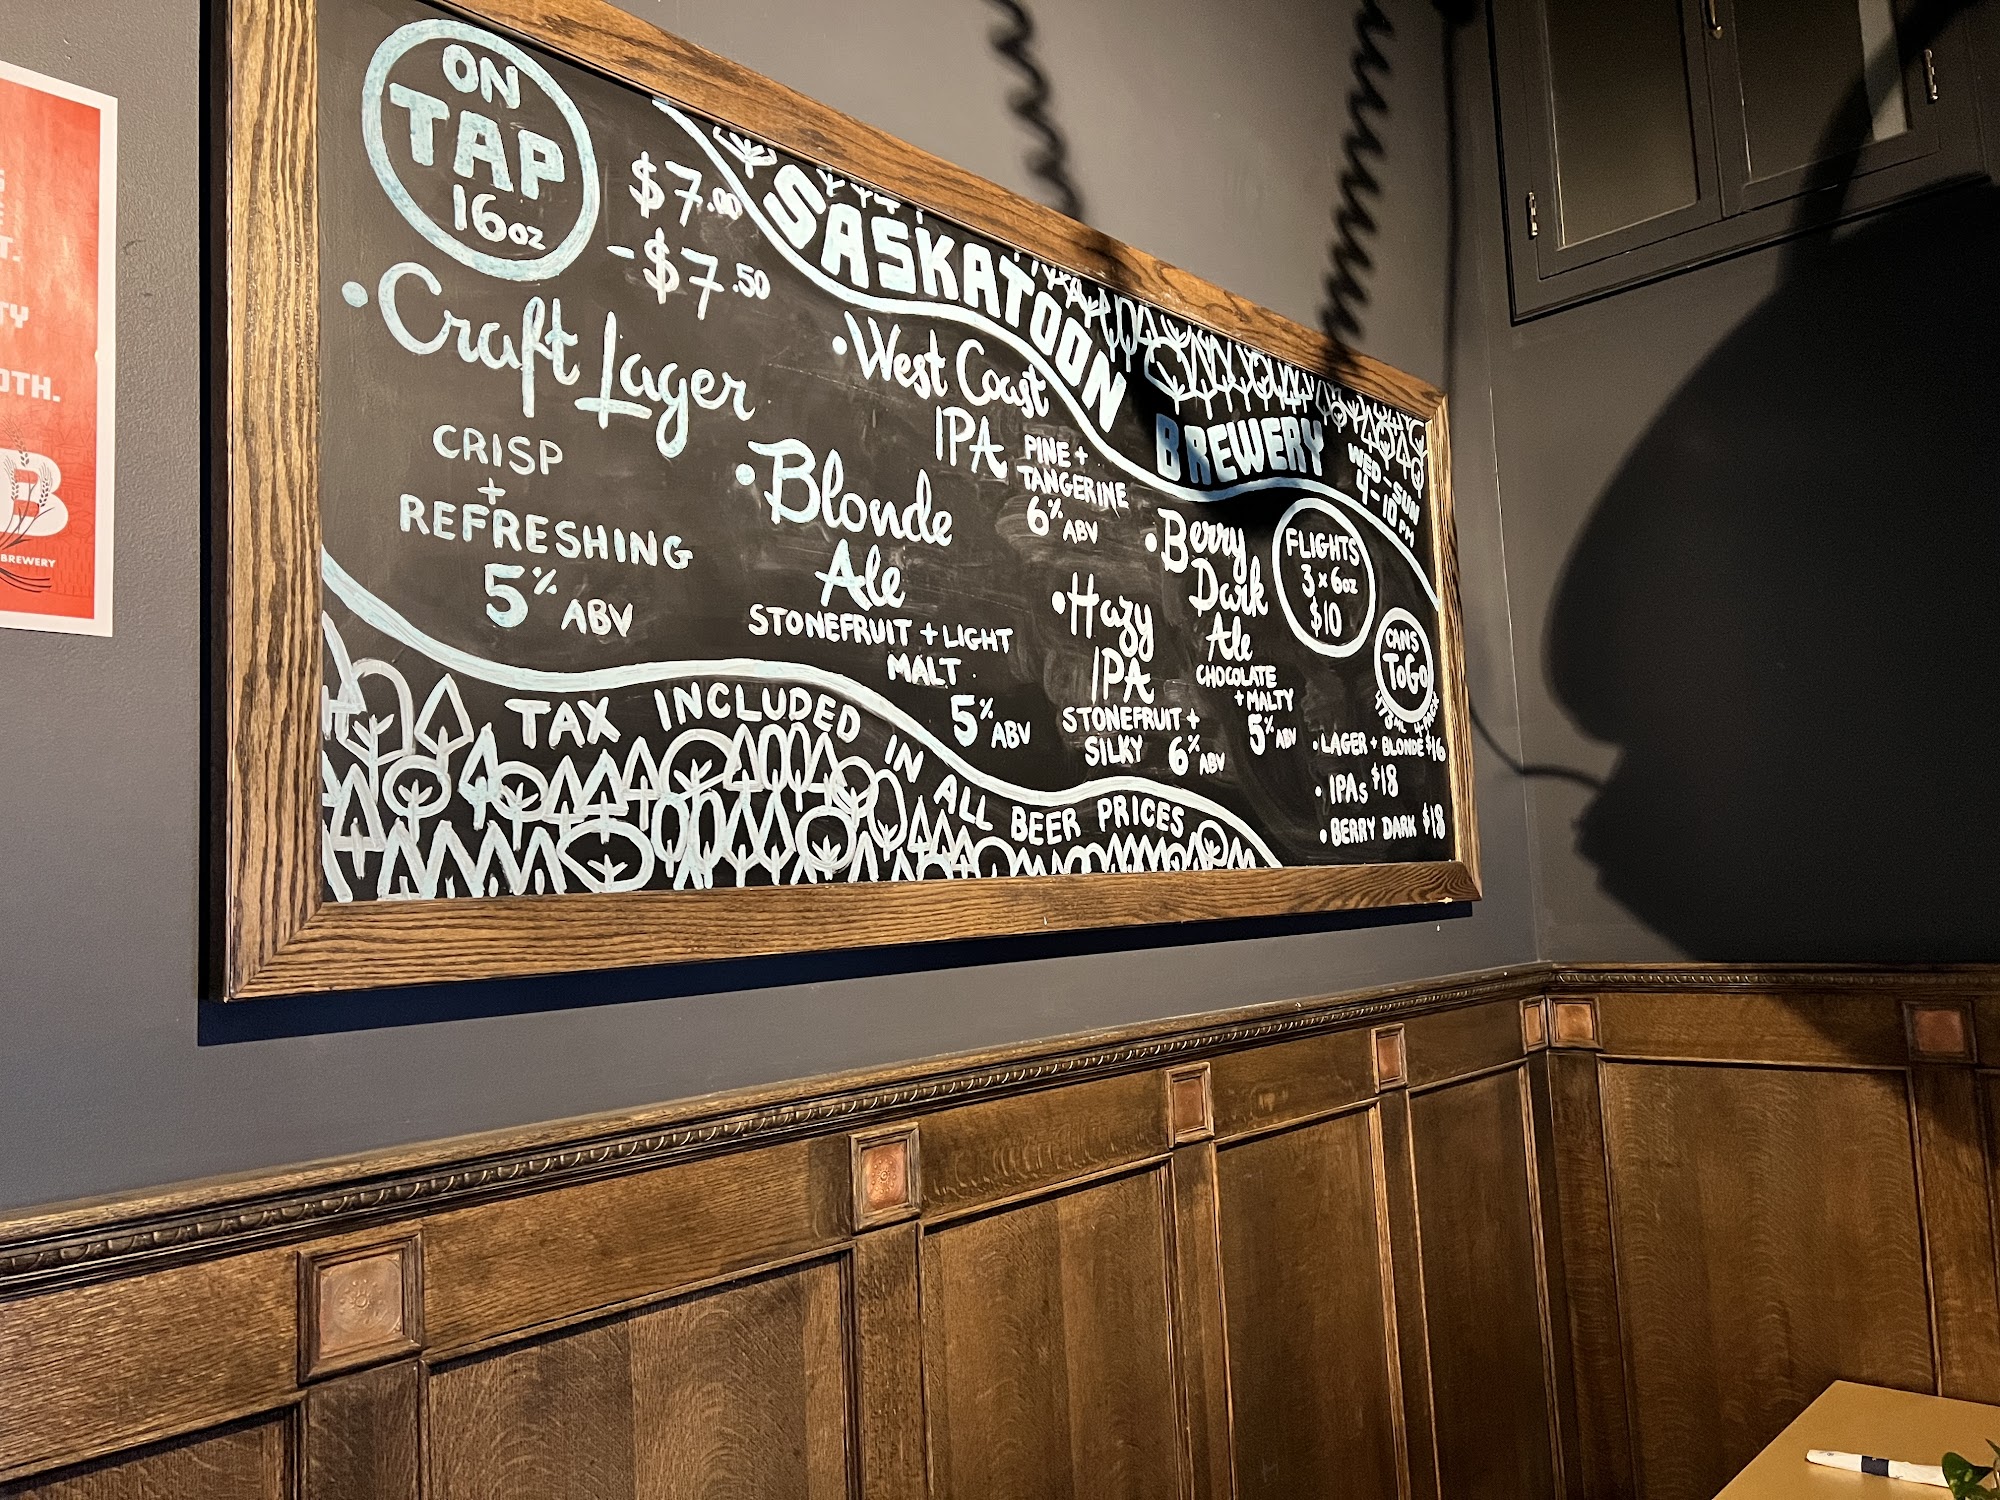 ON
TAP
16oz
$7.00
-$7.50
SASKATOON
BREWERY
WED-SUN
4-10PM
•Craft Lager
CRISP
+
REFRESHING
5% ABV
•Blonde
Ale
STONEFRUIT + LIGHT
MALT
5% ABV
•West Coast
IPA
PINE +
TANGERINE
6% ABV
•Hazy
IPA
STONEFRUIT +
SILKY 6% ABV
•Berry
Dark
Ale
CHOCOLATE
+ MALTY
5% ABV
FLIGHTS
3 x 6oz
$10
CANS
ToGo
473mL 4-PACK
•LAGER + BLONDE $16
•IPAs $18
•BERRY DARK $18
TAX INCLUDED IN ALL BEER PRICES
TY
OTH.
B
BREWERY